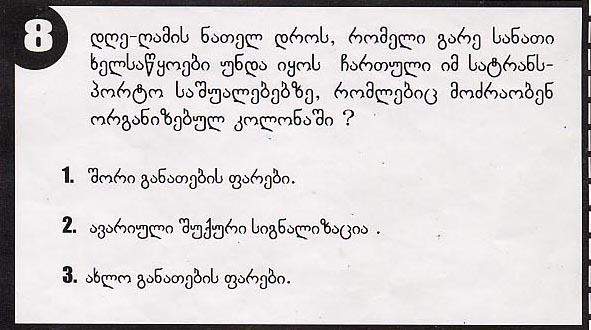 8
დღე-ღამის ნათელ დროს, რომელი გარე სანათი
ხელსაწყოები უნდა იყოს ჩართული იმ სატრანს-
პორტო საშუალებებზე, რომლებიც მოძრაობენ
ორგანიზებულ კოლონაში ?
1. შორი განათების ფარები.
2. ავარიული შუქური სიგნალიზაცია .
3. ახლო განათების ფარები.